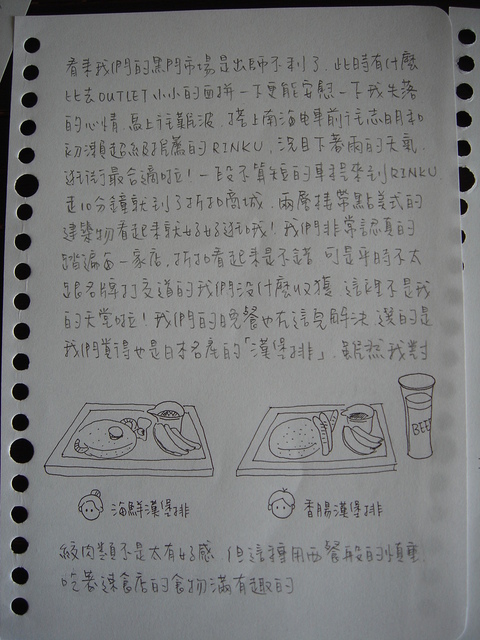 看來我們的黑門市場是出師不利了. 此時有什麼
比去OUTLET小小的血拼一下更能安慰一下我失落
的心情. 馬上往難波. 搭上南海電車前往志明和
初瀬超級推薦的RINKU. 況且下著雨的天氣
逛街最合適啦! 一段不算短的車程來到RINKU
走10分鐘就到了折扣商城. 兩層接帶點美式的
建築物看起來就好好逛哦! 我們非常認真的
踏遍每一家店. 折扣看起來是不錯 可是平時不太
跟名牌打交道的我們沒什麼收獲 這裡不是我
的天堂啦! 我們的晚餐也在這兒解決. 選的是
我們覺得也是日本名產的「漢堡排」. 雖然我對
BEE
海鮮漢堡排
香腸漢堡排
絞肉類不是太有好感 但這種用西餐般的慎重
吃著速食店的食物滿有趣的